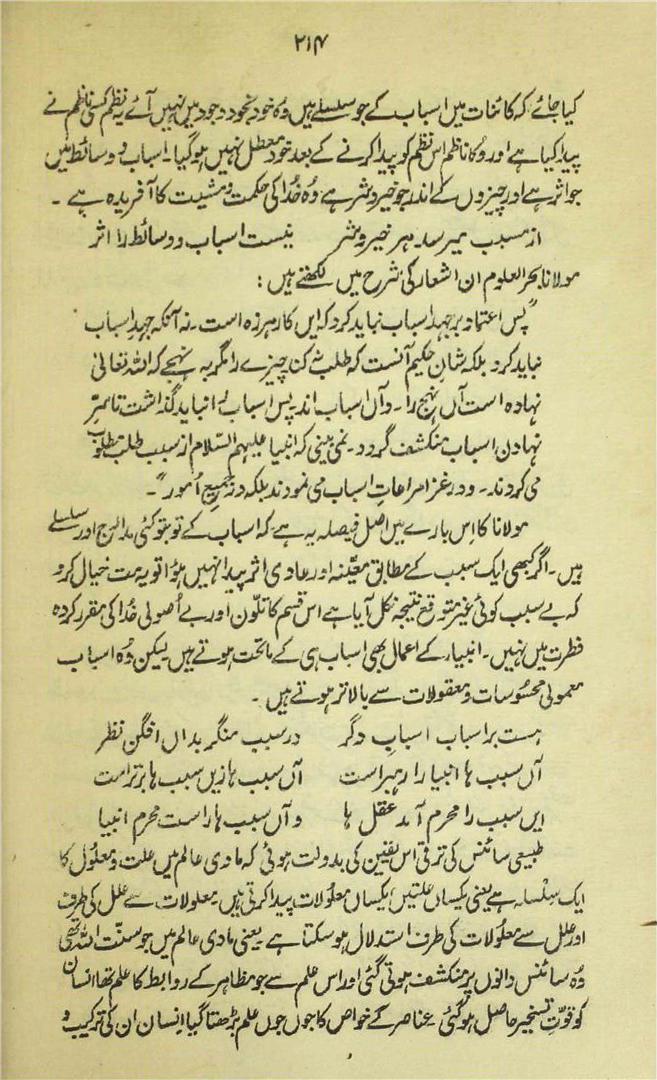 ۲۱۴
کیا جائے کہ کائنات میں اسباب کے جو سلسلے ہیں وہ خود بخود وجود میں نہیں آئے یہ نظم کسی ناظم نے
پیدا کیا ہے اور وہ ناظم اس نظم کو پیدا کرنے کے بعد خود معطل نہیں ہو گیا۔ اسباب و وسائط میں
جو اثر ہے اور چیزوں کے اندر جو خیر و شر ہے وہ خدا کی حکمت و مشیت کا آفریدہ ہے۔
از مسبب میرسد ہر خیر و شر نیست اسباب و وسائط را اثر
مولانا بحر العلوم ان اشعار کی شرح میں لکھتے ہیں:
"پس اعتماد بر جہد اسباب نباید کرد کہ ایں کار ہرزہ است۔ نہ آنکہ جہدِ اسباب
نباید کرد بلکہ شانِ حکیم آنست کہ طلب نہ کند چیزے را مگر بہ نہجے کہ اللہ تعالیٰ
نہادہ است آں نہج را۔ و آں اسباب اند پس اسباب را نباید گذاشت تا سرِّ
نہادن اسباب منکشف گردد۔ نمی بینی کہ انبیا علیہم السّلام از سبب طلب مطلوب
می کردند۔ و در غزا مراعاتِ اسباب می نمودند بلکہ در جمیع اُمور"۔
مولانا کا اس بارے میں اصل فیصلہ یہ ہے کہ اسباب کے تو بتو کئی مدارج اور سلسلے
ہیں۔ اگر کبھی ایک سبب کے مطابق معیّنہ اور عادی اثر پیدا نہیں ہوا تو یہ مت خیال کرو
کہ بے سبب کوئی غیر متوقع نتیجہ نکل آیا ہے اس قسم کا تلّون اور بے اُصولی خدا کی مقرر کردہ
فطرت میں نہیں۔ انبیاء کے اعمال بھی اسباب ہی کے ماتحت ہوتے ہیں لیکن وہ اسباب
معمولی محسوسات و معقولات سے بالاتر ہوتے ہیں۔
ہست بر اسباب اسبابِ دگر در سبب منگر بداں افگن نظر
آں سبب ہا انبیا را رہبر است آں سبب ہا زیں سبب ہا برتر است
ایں سبب را محرم آمد عقل ہا و آں سبب ہا راست محرم انبیا
طبیعی سائنس کی ترقی اس یقین کی بدولت ہوئی کہ مادی عالم میں علت و معلول کا
ایک سلسلہ ہے یعنی یکساں علتیں یکساں معلولات پیدا کرتی ہیں۔ معلولات سے علل کی طرف
اور علل سے معلولات کی طرف استدلال ہو سکتا ہے یعنی مادی عالم میں جو سنّت اللہ تھی
وہ سائنس دانوں پر منکشف ہوتی گئی اور اس علم سے جو مظاہر کے روابط کا علم تھا انسان
کو قوّتِ تسخیر حاصل ہو گئی عناصر کے خواص کا جوں جوں علم بڑھتا گیا انسان ان کی ترکیب و